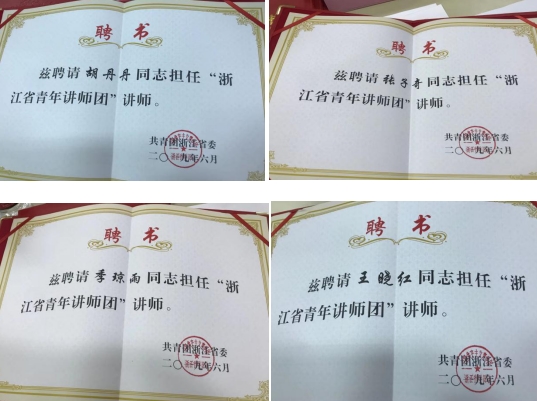 聘 书
兹聘请胡丹丹同志担任“浙
江省青年讲师团”讲师。
共青团浙江省委
二〇一九年六月
聘 书
兹聘请张子奇同志担任“浙
江省青年讲师团”讲师。
共青团浙江省委
二〇一九年六月
聘 书
兹聘请季琼雨同志担任“浙
江省青年讲师团”讲师。
共青团浙江省委
二〇一九年六月
聘 书
兹聘请王晓红同志担任“浙
江省青年讲师团”讲师。
共青团浙江省委
二〇一九年六月